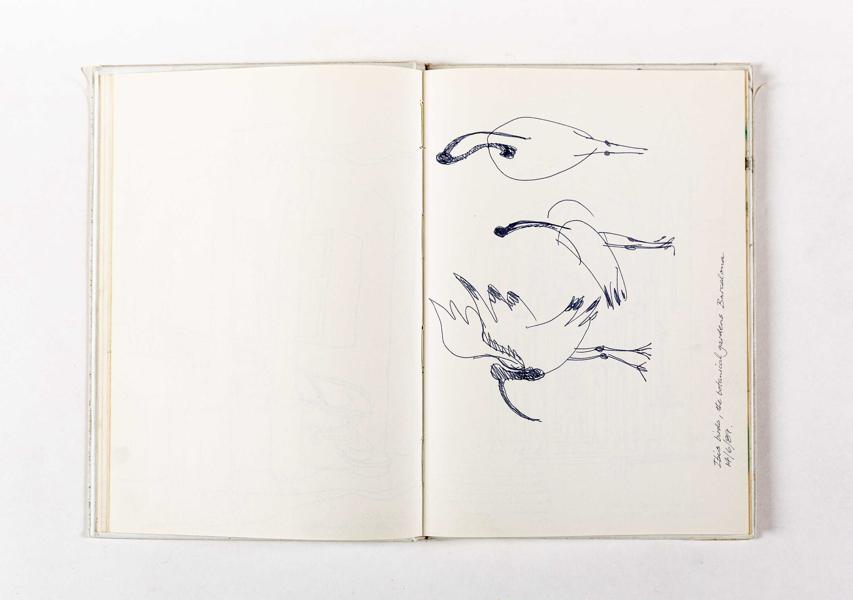 Ibis birds, the botanical gardens Barcelona
14/6/89.